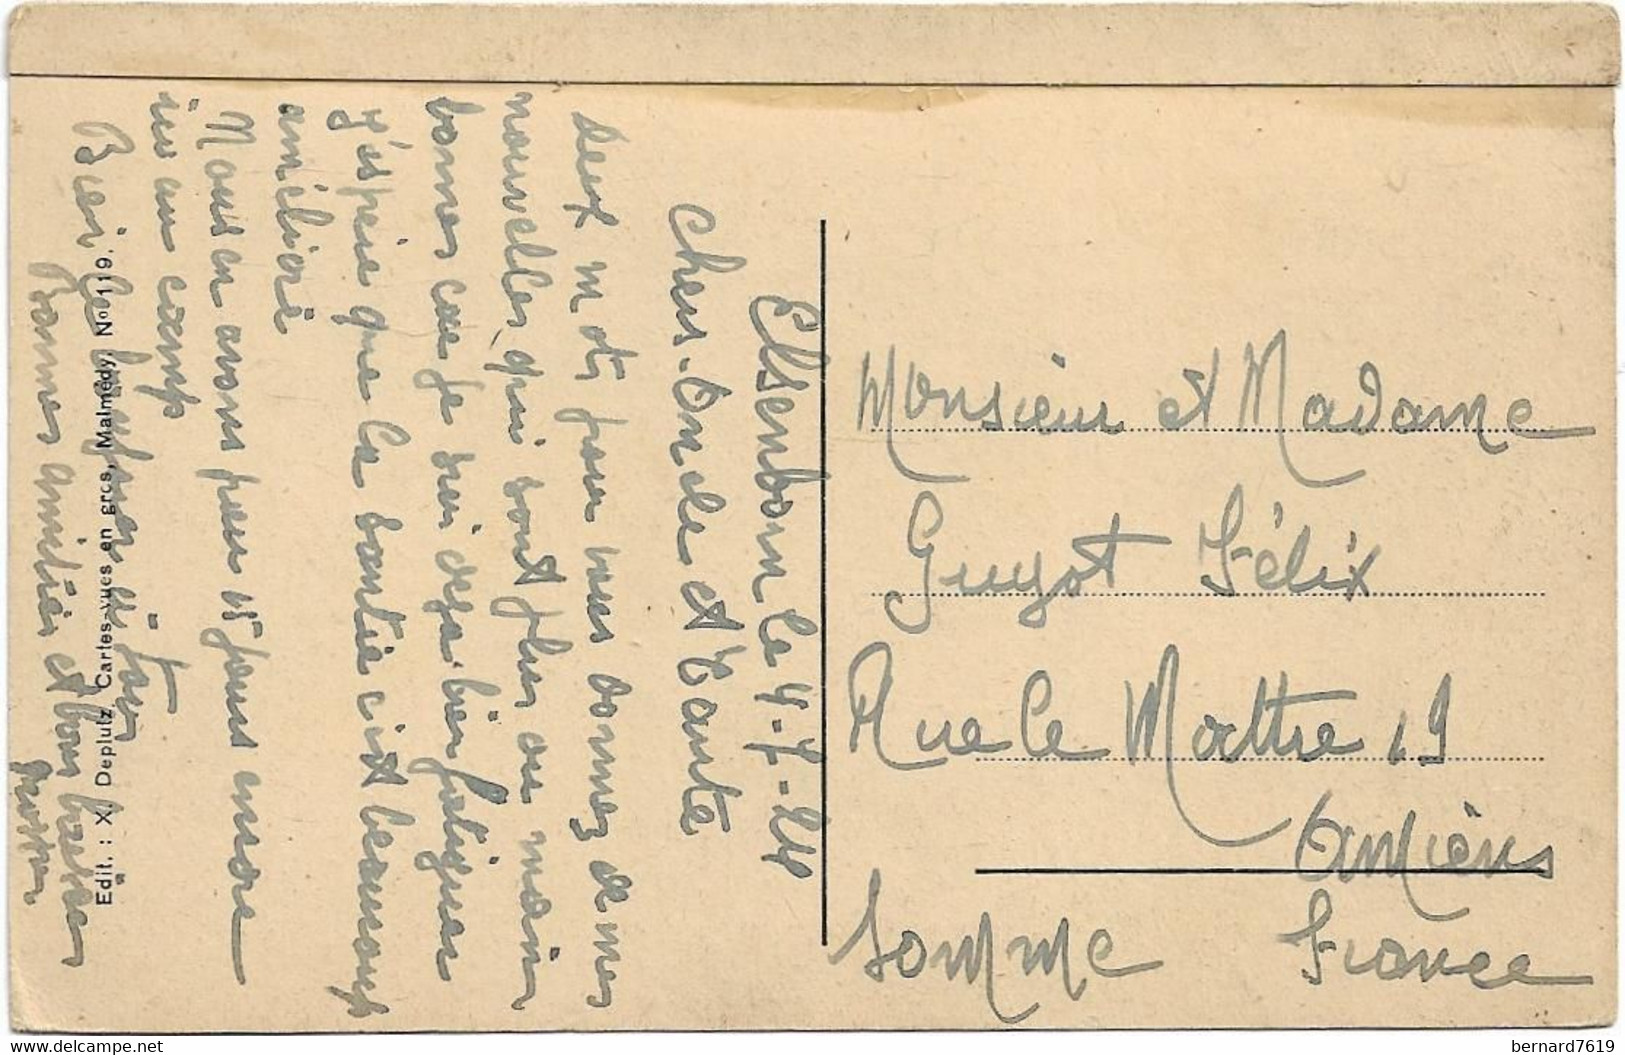 Elsenborn le 4-7-24
Chers-Oncle et Tante
Deux mots pour vous donnez de mes
nouvelles, qui sont plus ou moin
bonnes car je suis deja bien fatiguer
J'espère que la santée cist beaucoup
amélioré
Nous en avons pour 15 jours encore
ici au camp
Bien le bonjour à tous
Bonnes amitiés et bons baiser
Edit. : X. Deplutz Cartes-vues en gros, Malmédy, No 119.
Monsieur et Madame
Guyot Félix
Rue le Mattre 19
Amiens
Somme France
delcampe.net
bernard7619